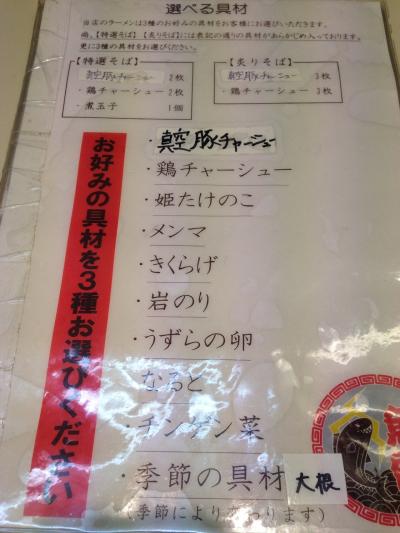 選べる具材
当店のラーメンは3種のお好みの具材をお客様にお選びいただきます。
尚、【特選そば】【炙りそば】には表記の通りの具材があらかじめ入っております。
更に3種の具材をお選びください。
【特選そば】
真空豚チャーシュー 2枚
・鶏チャーシュー 2枚
・煮玉子 1個
【炙りそば】
真空豚チャーシュー 3枚
・鶏チャーシュー 3枚
お好みの具材を3種お選びください
・真空豚チャーシュー
・鶏チャーシュー
・姫たけのこ
・メンマ
・きくらげ
・岩のり
・うずらの卵
なると
・チンゲン菜
・季節の具材 大根
(季節により変わります)